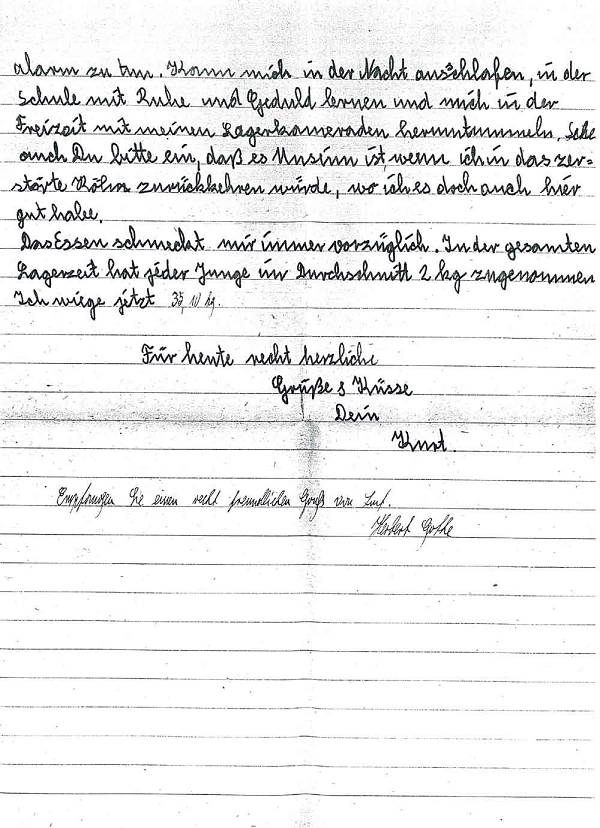 alarm zu tun. Kann mich in der Nacht ausschlafen, in der
Schule mit Ruhe und Geduld lernen und mich in der
Freizeit mit meinen Lagerkameraden herumtummeln. Sehe
auch Du bitte ein, daß es Unsinn ist, wenn ich in das zer-
störte Köln zurückkehren würde, wo ich es doch auch hier
gut habe.
Das Essen schmeckt mir immer vorzüglich. In der gesamten
Lagerzeit hat jeder Junge im Durchschnitt 2 kg zugenommen
Ich wiege jetzt 35,10 kg.
Für heute recht herzliche
Grüße & Küsse
Dein
Kurt.
Empfangen Sie einen recht freundlichen Gruß vom
Herbert Gothe